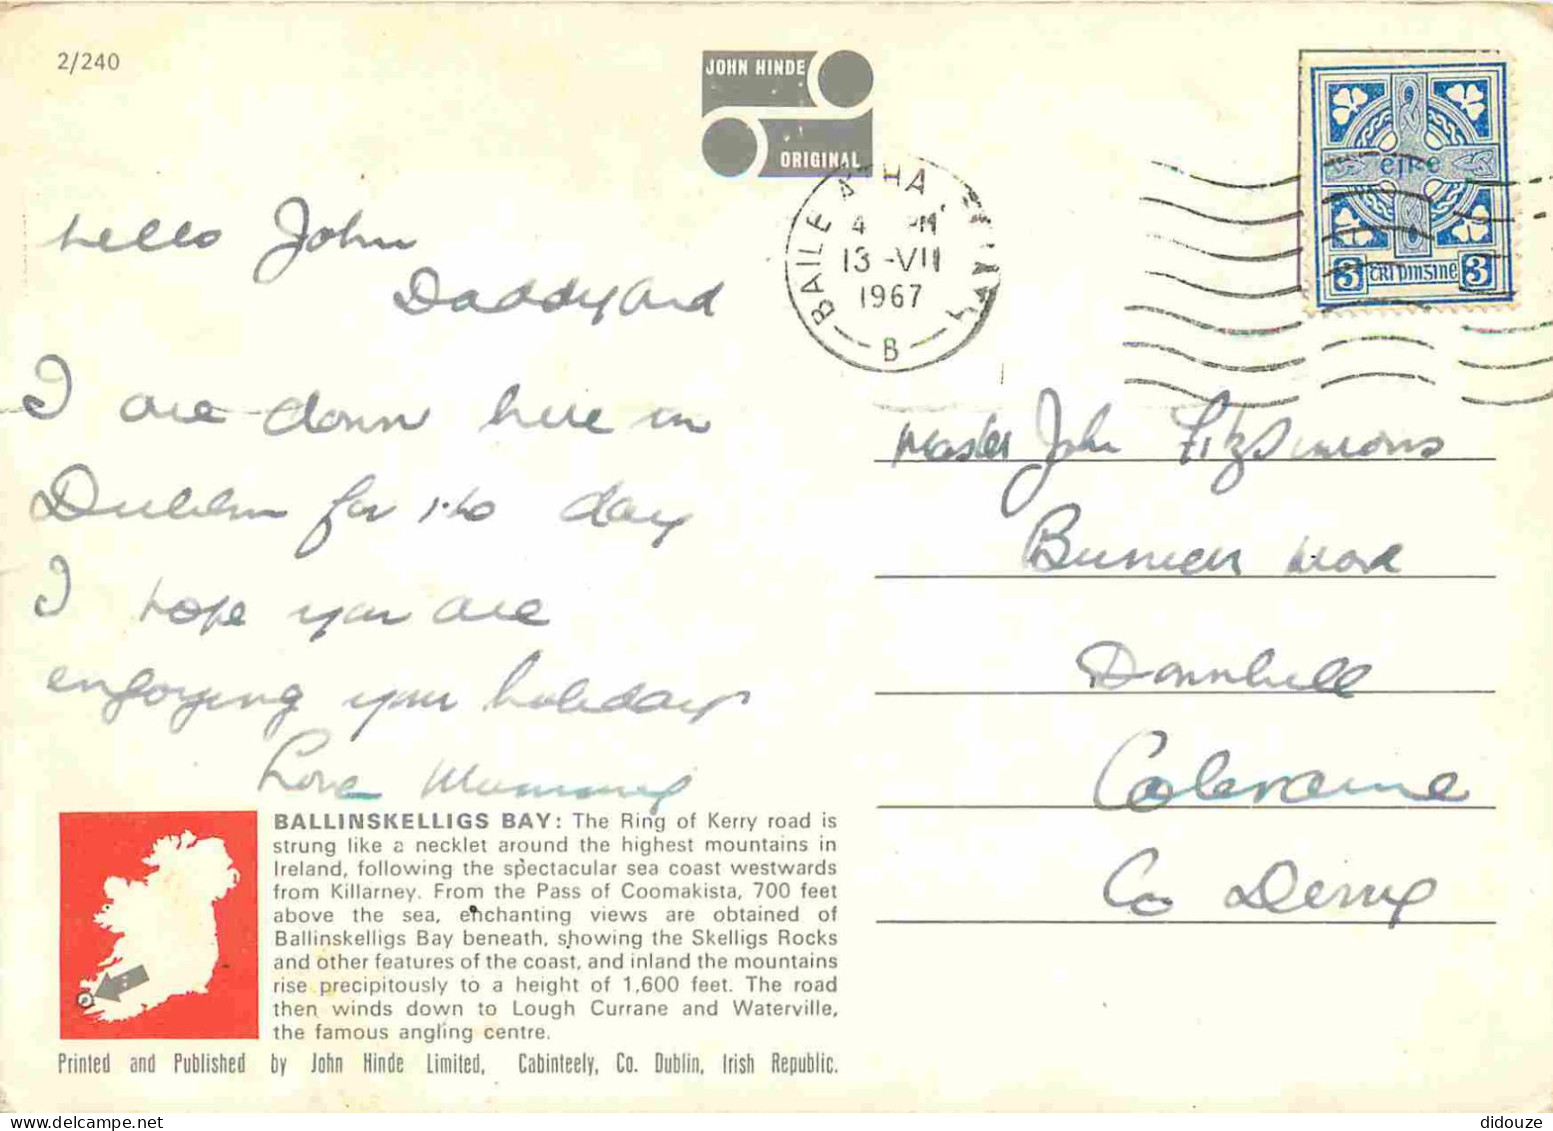 2/240
JOHN HINDE
ORIGINAL
BAILE ATHA
4 PM
13 -VII
1967
B
éire
3 trí pinsine 3
hello John
Daddy and
I are down here in
Dublin for the day
I hope you are
enjoying your holidays
Love Mummy
Master John Fitzsimons
Downhill
Coleraine
Co Derry
BALLINSKELLIGS BAY: The Ring of Kerry road is
strung like a necklet around the highest mountains in
Ireland, following the spectacular sea coast westwards
from Killarney. From the Pass of Coomakista, 700 feet
above the sea, enchanting views are obtained of
Ballinskelligs Bay beneath, showing the Skelligs Rocks
and other features of the coast, and inland the mountains
rise precipitously to a height of 1,600 feet. The road
then winds down to Lough Currane and Waterville,
the famous angling centre.
Printed and Published by John Hinde Limited, Cabinteely, Co. Dublin, Irish Republic.
didouze